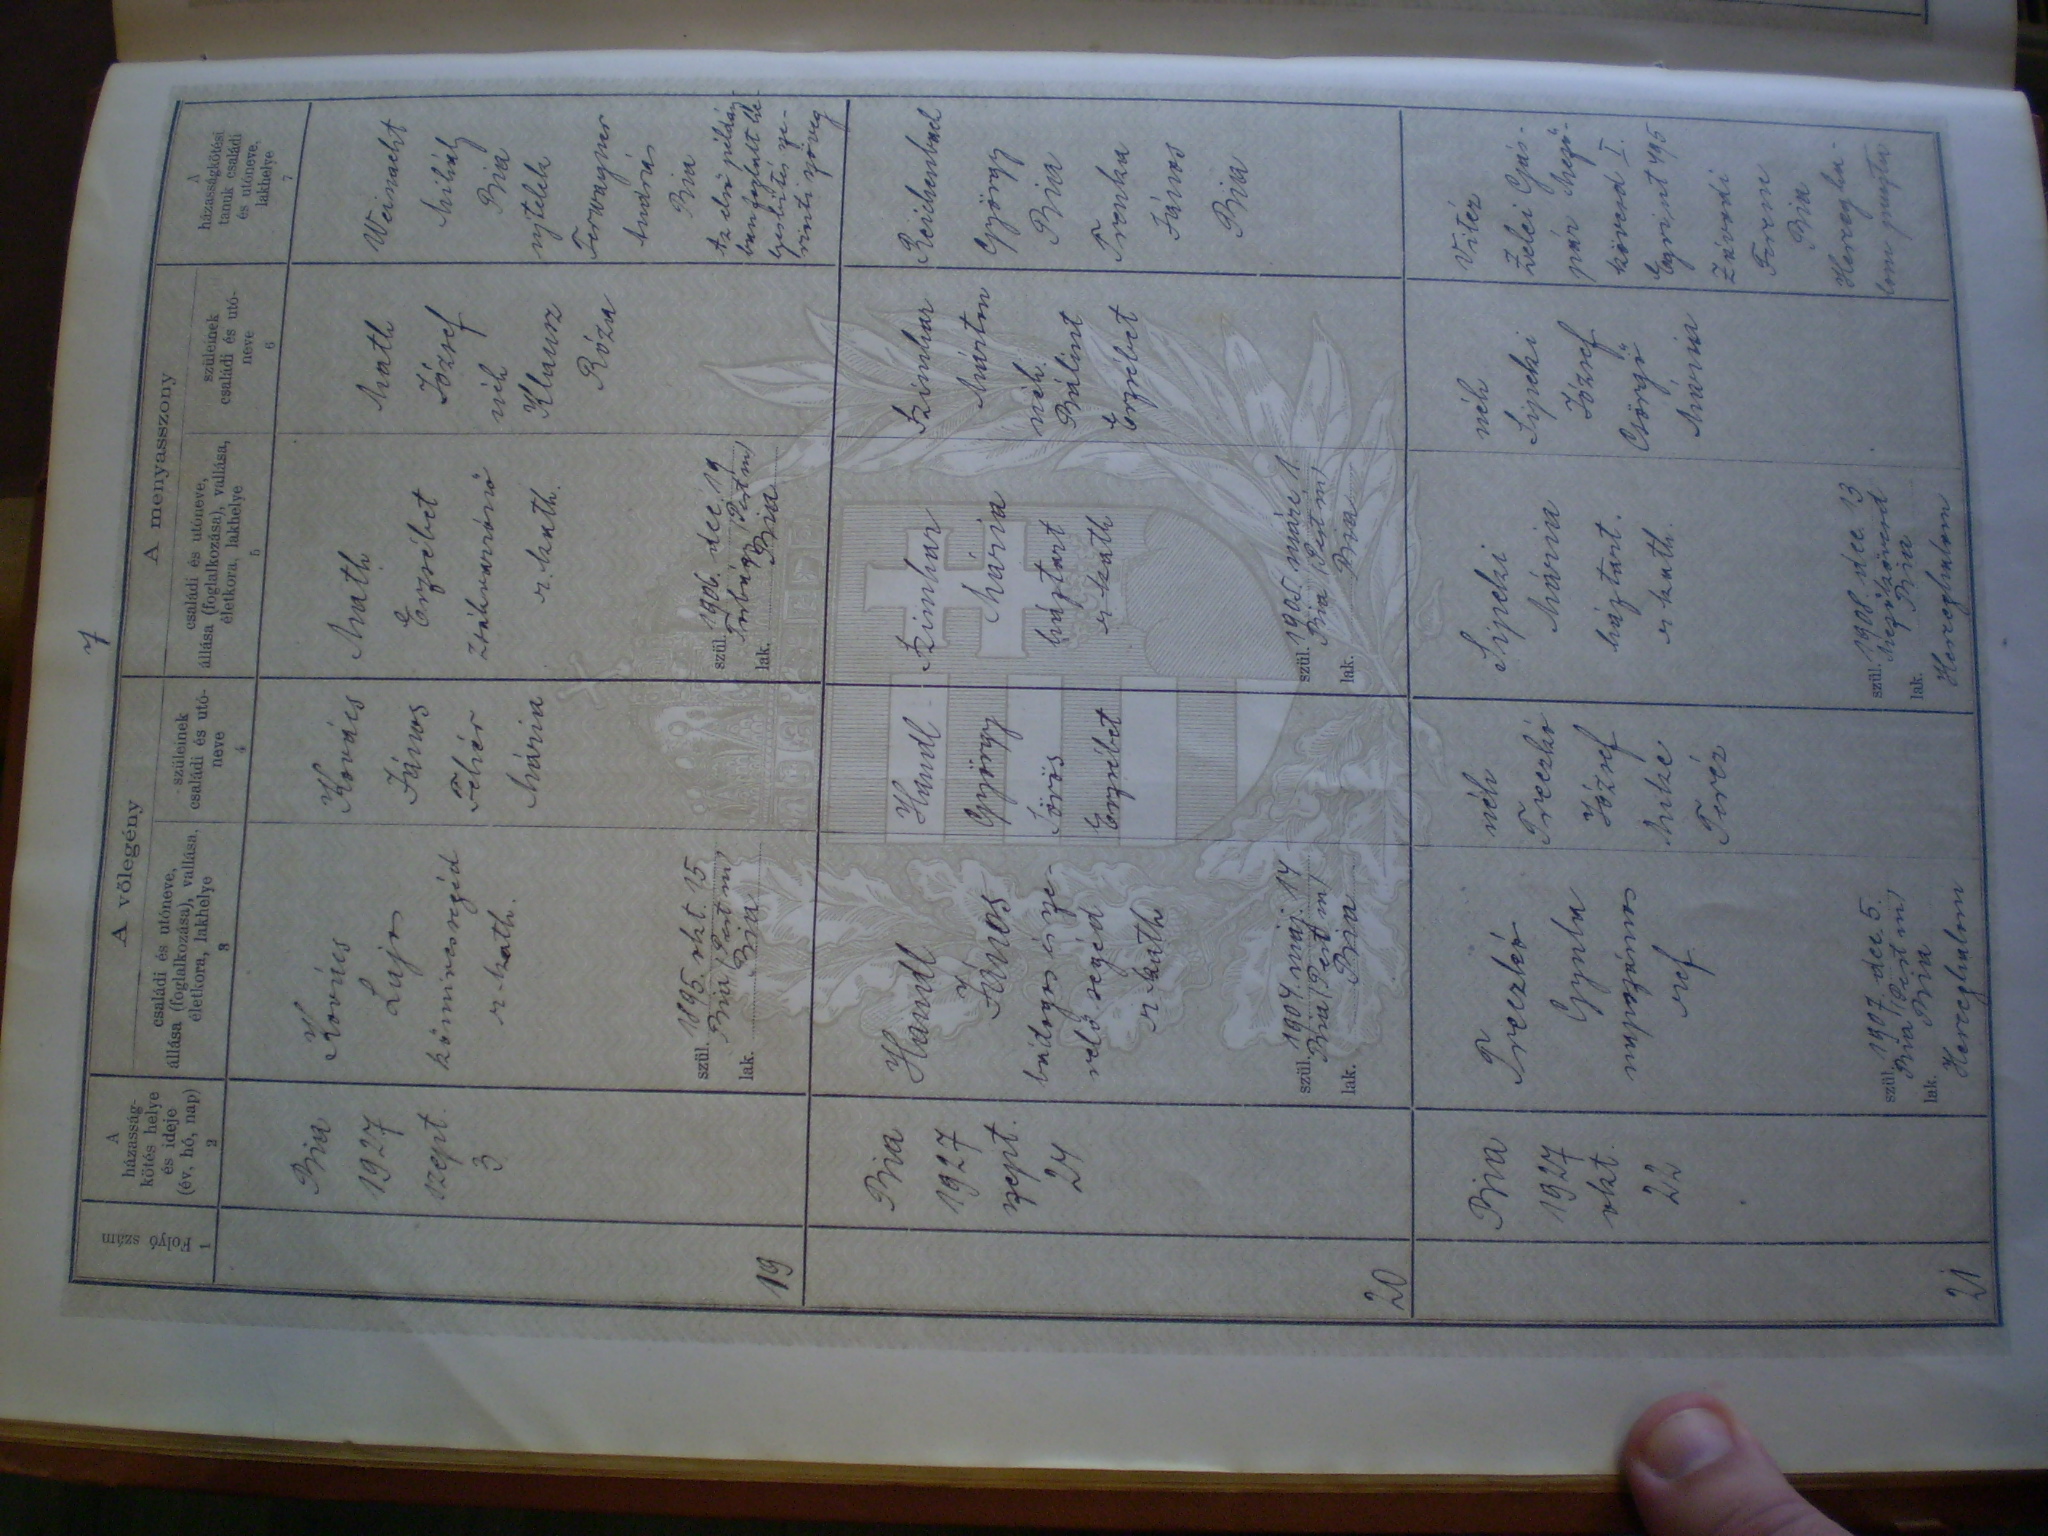 7
A vőlegény
A menyasszony
Folyó szám
1
A
házasság-
kötés helye
és ideje
(év, hó, nap)
2
családi és utóneve,
állása (foglalkozása), vallása,
életkora, lakhelye
3
szüleinek
családi és utó-
neve
4
családi és utóneve,
állása (foglalkozása), vallása,
életkora, lakhelye
5
szüleinek
családi és utó-
neve
6
A
házasságkötési
tanuk családi
és utóneve,
lakhelye
7
19
Bia
1927
szept.
3
Kovács
Lajos
kőmivessegéd
r. kath.
szül. 1895. okt. 15
Bia (Pest m)
lak. Bia
Kovács
János
Fehér
Mária
Math
Erzsébet
r. kath.
szül. 1906. dec. 19
Torbágy (Pest m)
lak. Bia
Math
József
néh
Klausz
Róza
Weinacht
Mihály
Bia
Ferwagner
András
Bia
Az első példány
20
Bia
1927
szept.
24
Handl
János
bádogos és sze-
relő segéd
r. kath
szül. 1904. máj. 14
Bia (Pest m)
lak. Bia
Handl
György
Sörös
Erzsébet
Szimhar
Mária
háztart
r. kath
szül. 1905. márc. 1.
Bia (Pest m)
lak. Bia
Szimhar
Márton
néh.
Bálint
Erzsébet
Reichenbach
György
Bia
Trenka
János
Bia
21
Bia
1927
okt.
22
Preczkó
Gyula
napszámos
ref
szül. 1907. dec. 5.
Bia (Pest m)
lak. Bia
Herceghalom
néh
Preczkó
József
Teréz
Sipeki
Mária
háztart.
r. kath.
szül. 1908. dec. 13
Mezőkövesd
lak. Bia
Herceghalom
néh
Sipeki
József
Csörgő
Mária
Vitéz
Zelei Gás-
pár Mező-
kövesd I.
Závodi
Ferenc
Bia
Herczegha-
lom puszta